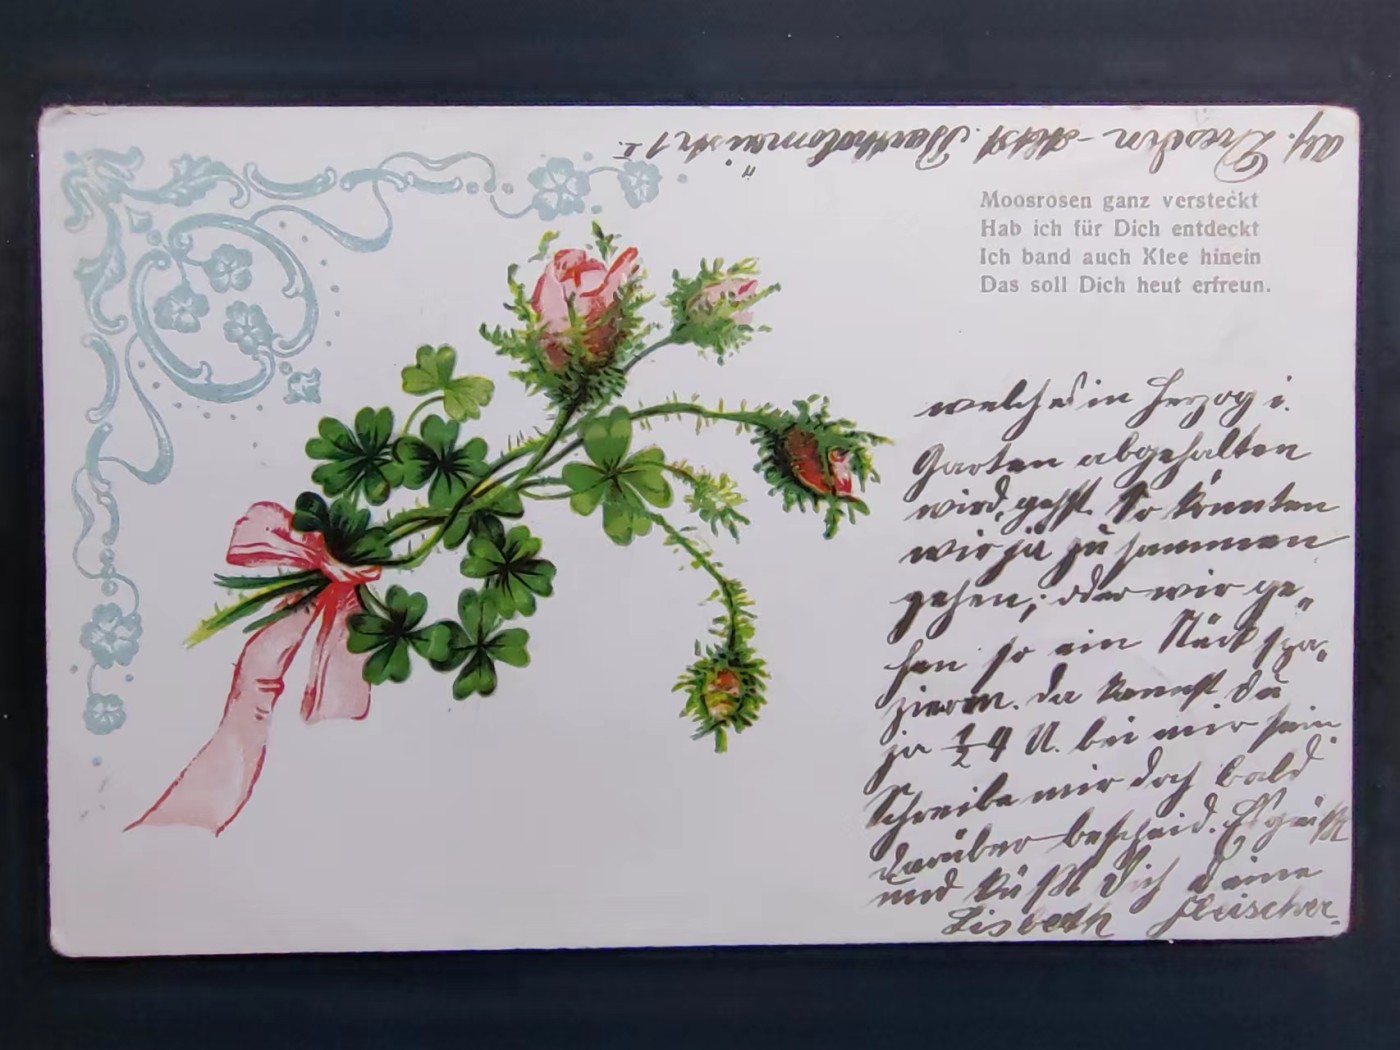 Dresden - Altst.
Moosrosen ganz versteckt
Hab ich für Dich entdeckt
Ich band auch Klee hinein
Das soll Dich heut erfreun.
welches in Herzog i.
Garten abgehalten
wird, gehst. So könnten
wir ja zusammen
gehen; oder wir ge„
hen so ein Stück spa„
zieren. Da kannst Du
ja ½ 4 U. bei mir sein
Schreibe mir doch bald
darüber bescheid. Es grüßt
und küßt Dich Deine
Lisbeth Fleischer.